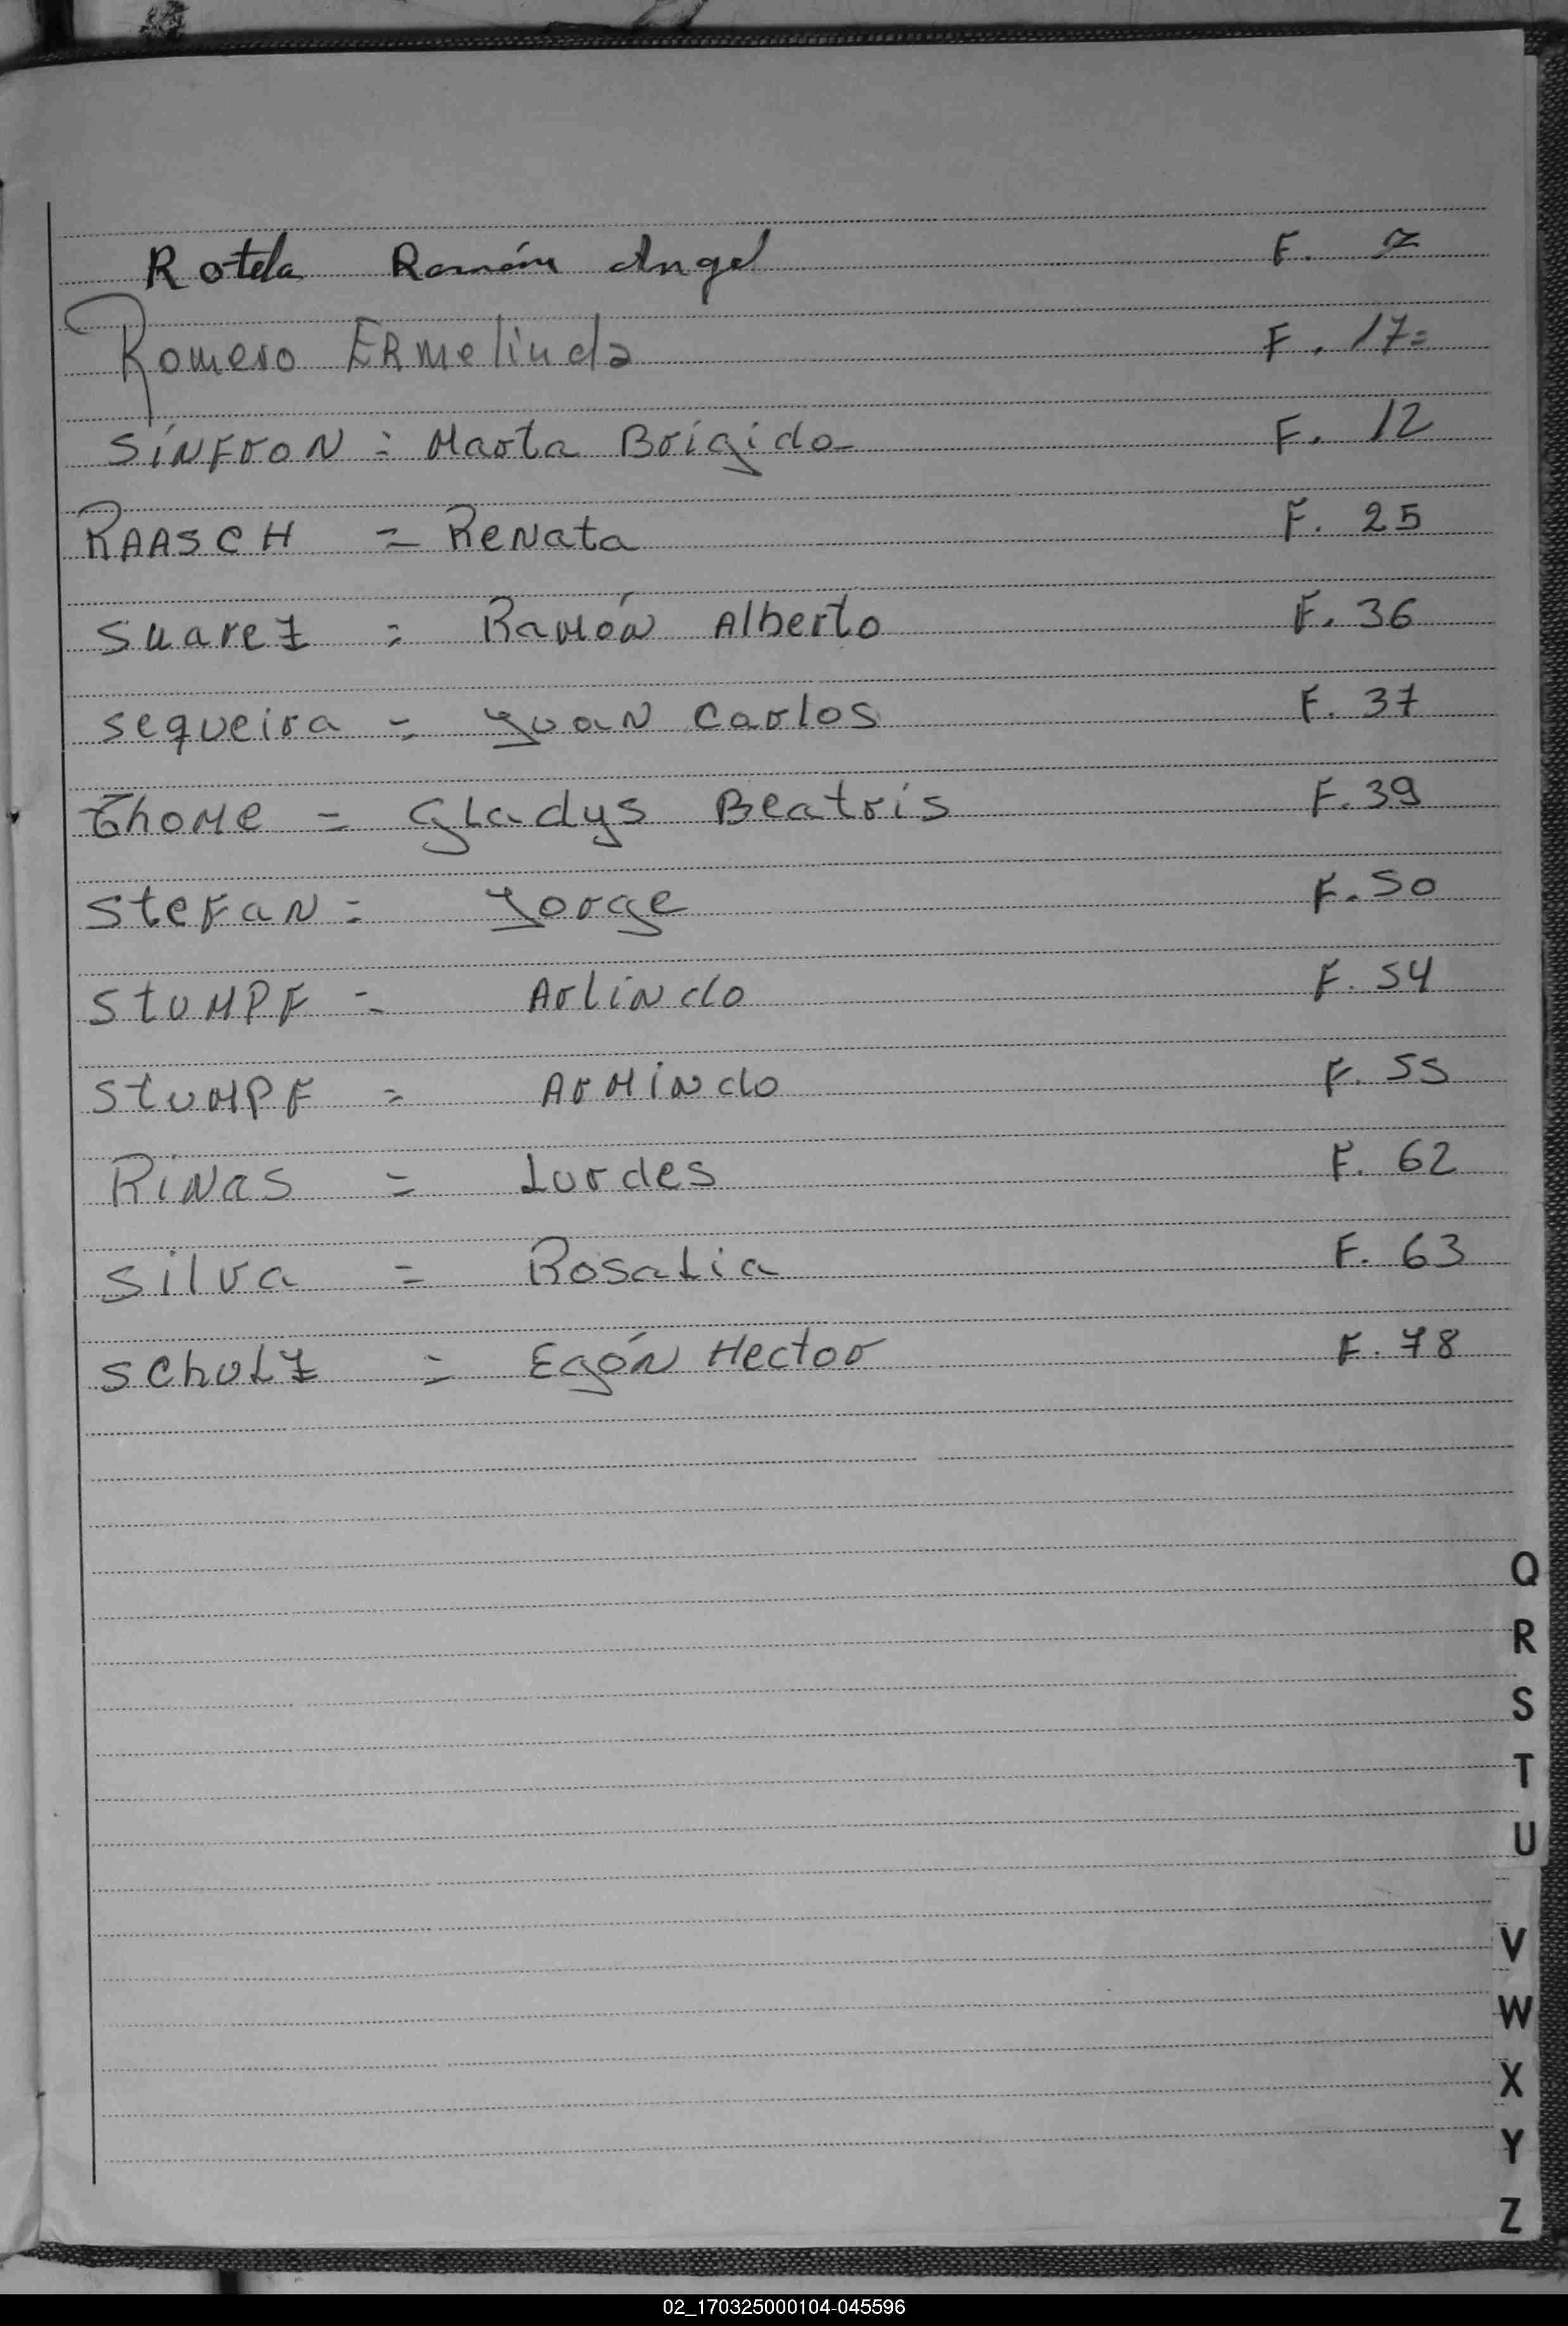 Rotela Ramón Angel F. 2
Romero ERmelinda F. 17=
SiNFroN = Marta Brigido F. 12
RAASCH = ReNata F. 25
suarez = Ramón Alberto F. 36
sequeira = JuaN carlos F. 37
Thome = GLadys Beatris F. 39
SteFaN = Jorge F. 50
StuMPF = ArliNdo F. 54
StuMPF = ArMiNdo F. 55
RiNas = Lurdes F. 62
silva = RosaLia F. 63
SchuLz = EgóN Hector F. 78
Q
R
S
T
U
V
W
X
Y
Z
02_170325000104-045596